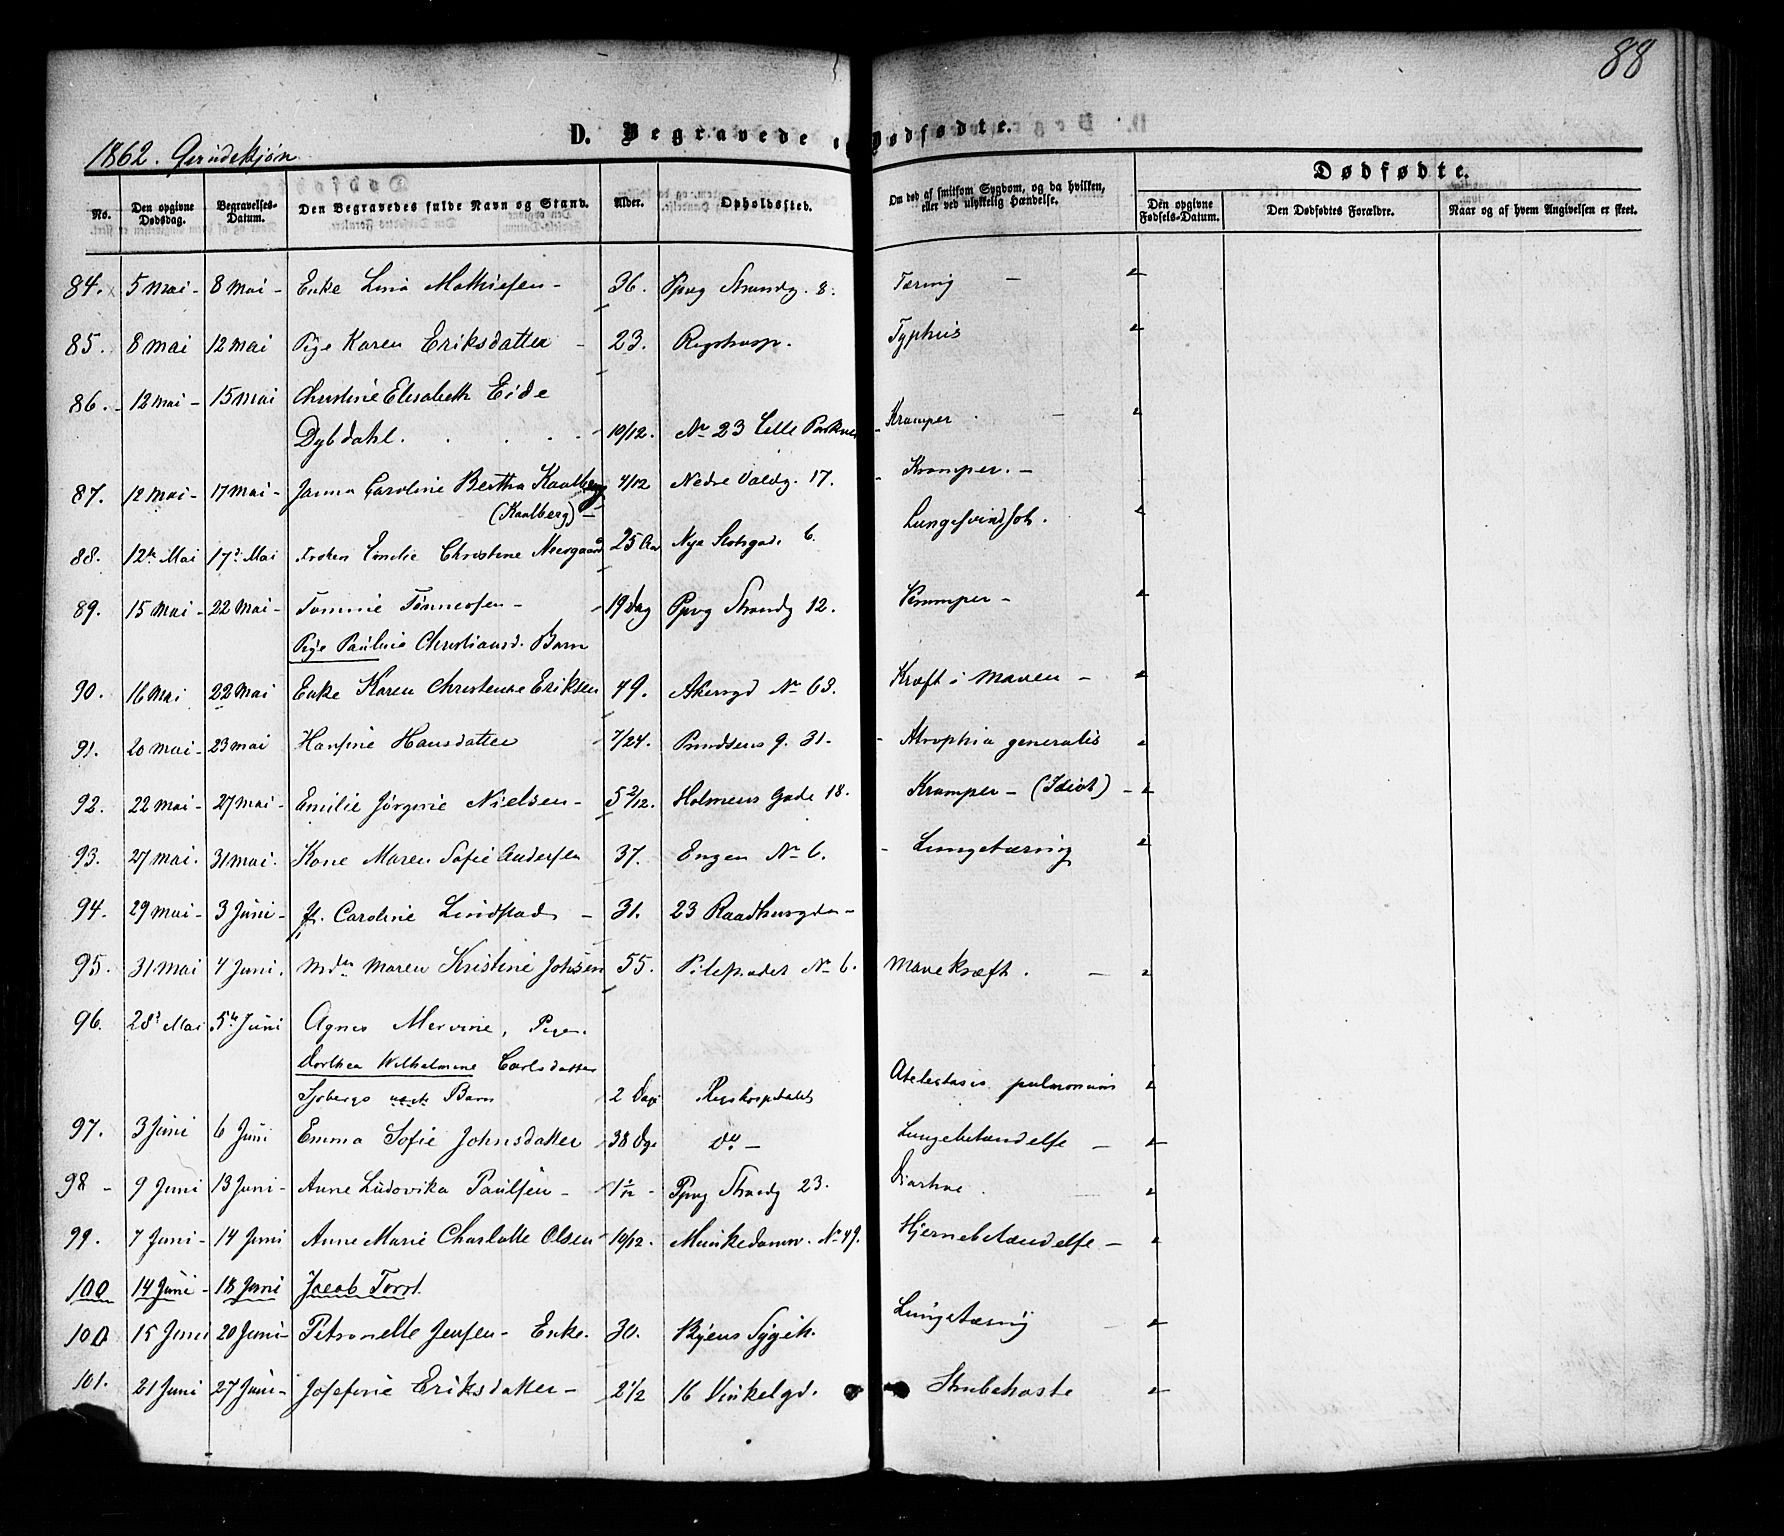 88
D. Begravede og Dødfødte.
1862. Qvindekjøn
Dødfødte.
No. Den opgivne Dødsdag. Begravelses-Datum. Den Begravedes fulde Navn og Stand. Alder. Opholdssted. Om død af smitsom Sygdom, og da hvilken, eller ved ulykkelig Hændelse. Den opgivne Fødsels-Datum. Den Dødfødtes Forældre. Naar og af hvem Angivelsen er skeet.
84. 5 Mai - 8 Mai - Enke Lina Mathiesen - 36. Ppvg Strandg. 8. Tæring -
85. 8 Mai 12 Mai Pige Karen Eriksdatter - 23. Rigshosp. Typhus
86. - 12 Mai - 15 Mai Christine Elisabeth Eide
Dybdahl. 10/12. No 23 Lille - Kramper
87. 12 Mai - 17 Mai - Janna Caroline Bertha Kaalberg 4/12 Nedre Voldg. 17. - Kramper. -
(Kaalberg) -
88. 12te Mai 17de Mai Frøken Emilie Christine Neergaard 25 Aar Nye Slotsgade 6. Lungesvindsot.
89. 15 Mai - 22 Mai - Tomine Tønnesen - 19 Dag Ppvg Strandg 12. Kramper -
Pige Pauline Christiansd. Barn
90. 16 Mai 22 Mai Enke Karen Christense Eriksen 49. Akersgd No 63. Kræft i Maven -
91. 20 Mai - 23 Mai Hansine Hansdatter 7/24. Pundsens g. 31. - Atrophia generalis
92. 22 Mai - 27 Mai - Emilie Jørgine Nielsen - 5 2/12. Holmens Gade 18. Kramper - (Idiot) -
93. 27 Mai. 31 Mai. Kone Maren Sofie Andersen 37. Engen No 6. - Lungetæring
94. 29 Mai - 3 Juni - Fr. Caroline Lindstad - 31. 23 Raadhusgden -
95. 31 Mai 4 Juni. Mden Maren Kristine Johsen 55. Pilestrædet No 6. Mavekræft. -
96. 28de Mai 5te Juni Agnes Mervine, Pigen
Dorthea Wilhelmine Carlsdatter
Sjøbergs uægte Barn 2 Dage Rigshospitalet Atelectasis pulmonum
97. 3 Juni 6 Juni Emma Sofie Johnsdatter 38 Dge do - Lungebetændelse -
98 - 9 Juni 13 Juni - Anne Ludovika Paulsen - 1 1/12 - Ppvg Strandg 23. Diarhoe
99. 7 Juni - 14 Juni Anne Marie Charlotte Olsen 10/12. Munkedamv. No 49. Hjernebetændelse -
100 14 Juni - 18 Juni Jacob Torst
100 15 Juni 20 Juni - Petronelle Jensen - Enke. 30. Byens Sygeh. Lungetæring
101. 21 Juni 27 Juni - Josefine Eriksdatter - 2 1/2 16 Vinkelgd. Strubehoste